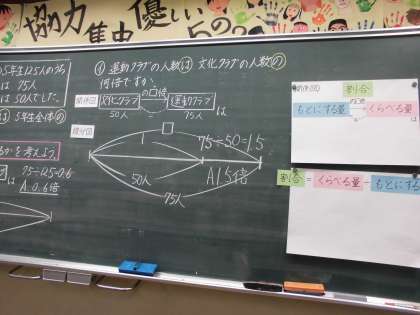 協力
集中
優しい
5年生125人のう
は 75人
は 50人でした。
は 5年生全体の
かを考えよう。
は 75÷125=0.6
A 0.6倍
④ 運動クラブの人数は 文化クラブの人数の
何倍ですか。
関係図 文化クラブ の□倍 運動クラブ は
50人 75人
線分図
□
1
75÷50=1.5
50人
A 1.5倍
75人
関係図 割合
の□倍
もとにする量 くらべる量
割合 = くらべる量 ÷ もとにする